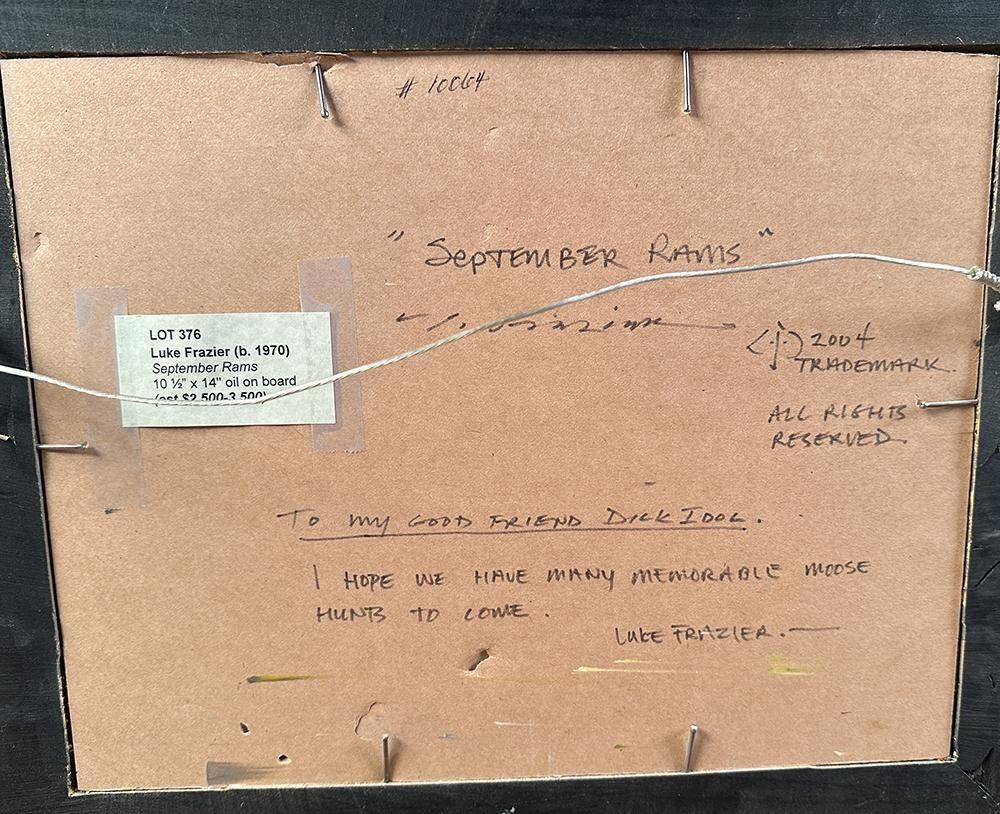 # 10064
" SEPTEMBER RAMS "
2004
TRADEMARK.
LOT 376
Luke Frazier (b. 1970)
September Rams
10 ½" x 14" oil on board
(est $2,500-3,500)
ALL RIGHTS
RESERVED.
TO MY GOOD FRIEND DICK IDOL.
I HOPE WE HAVE MANY MEMORABLE MOOSE
HUNTS TO COME.
LUKE FRAZIER.